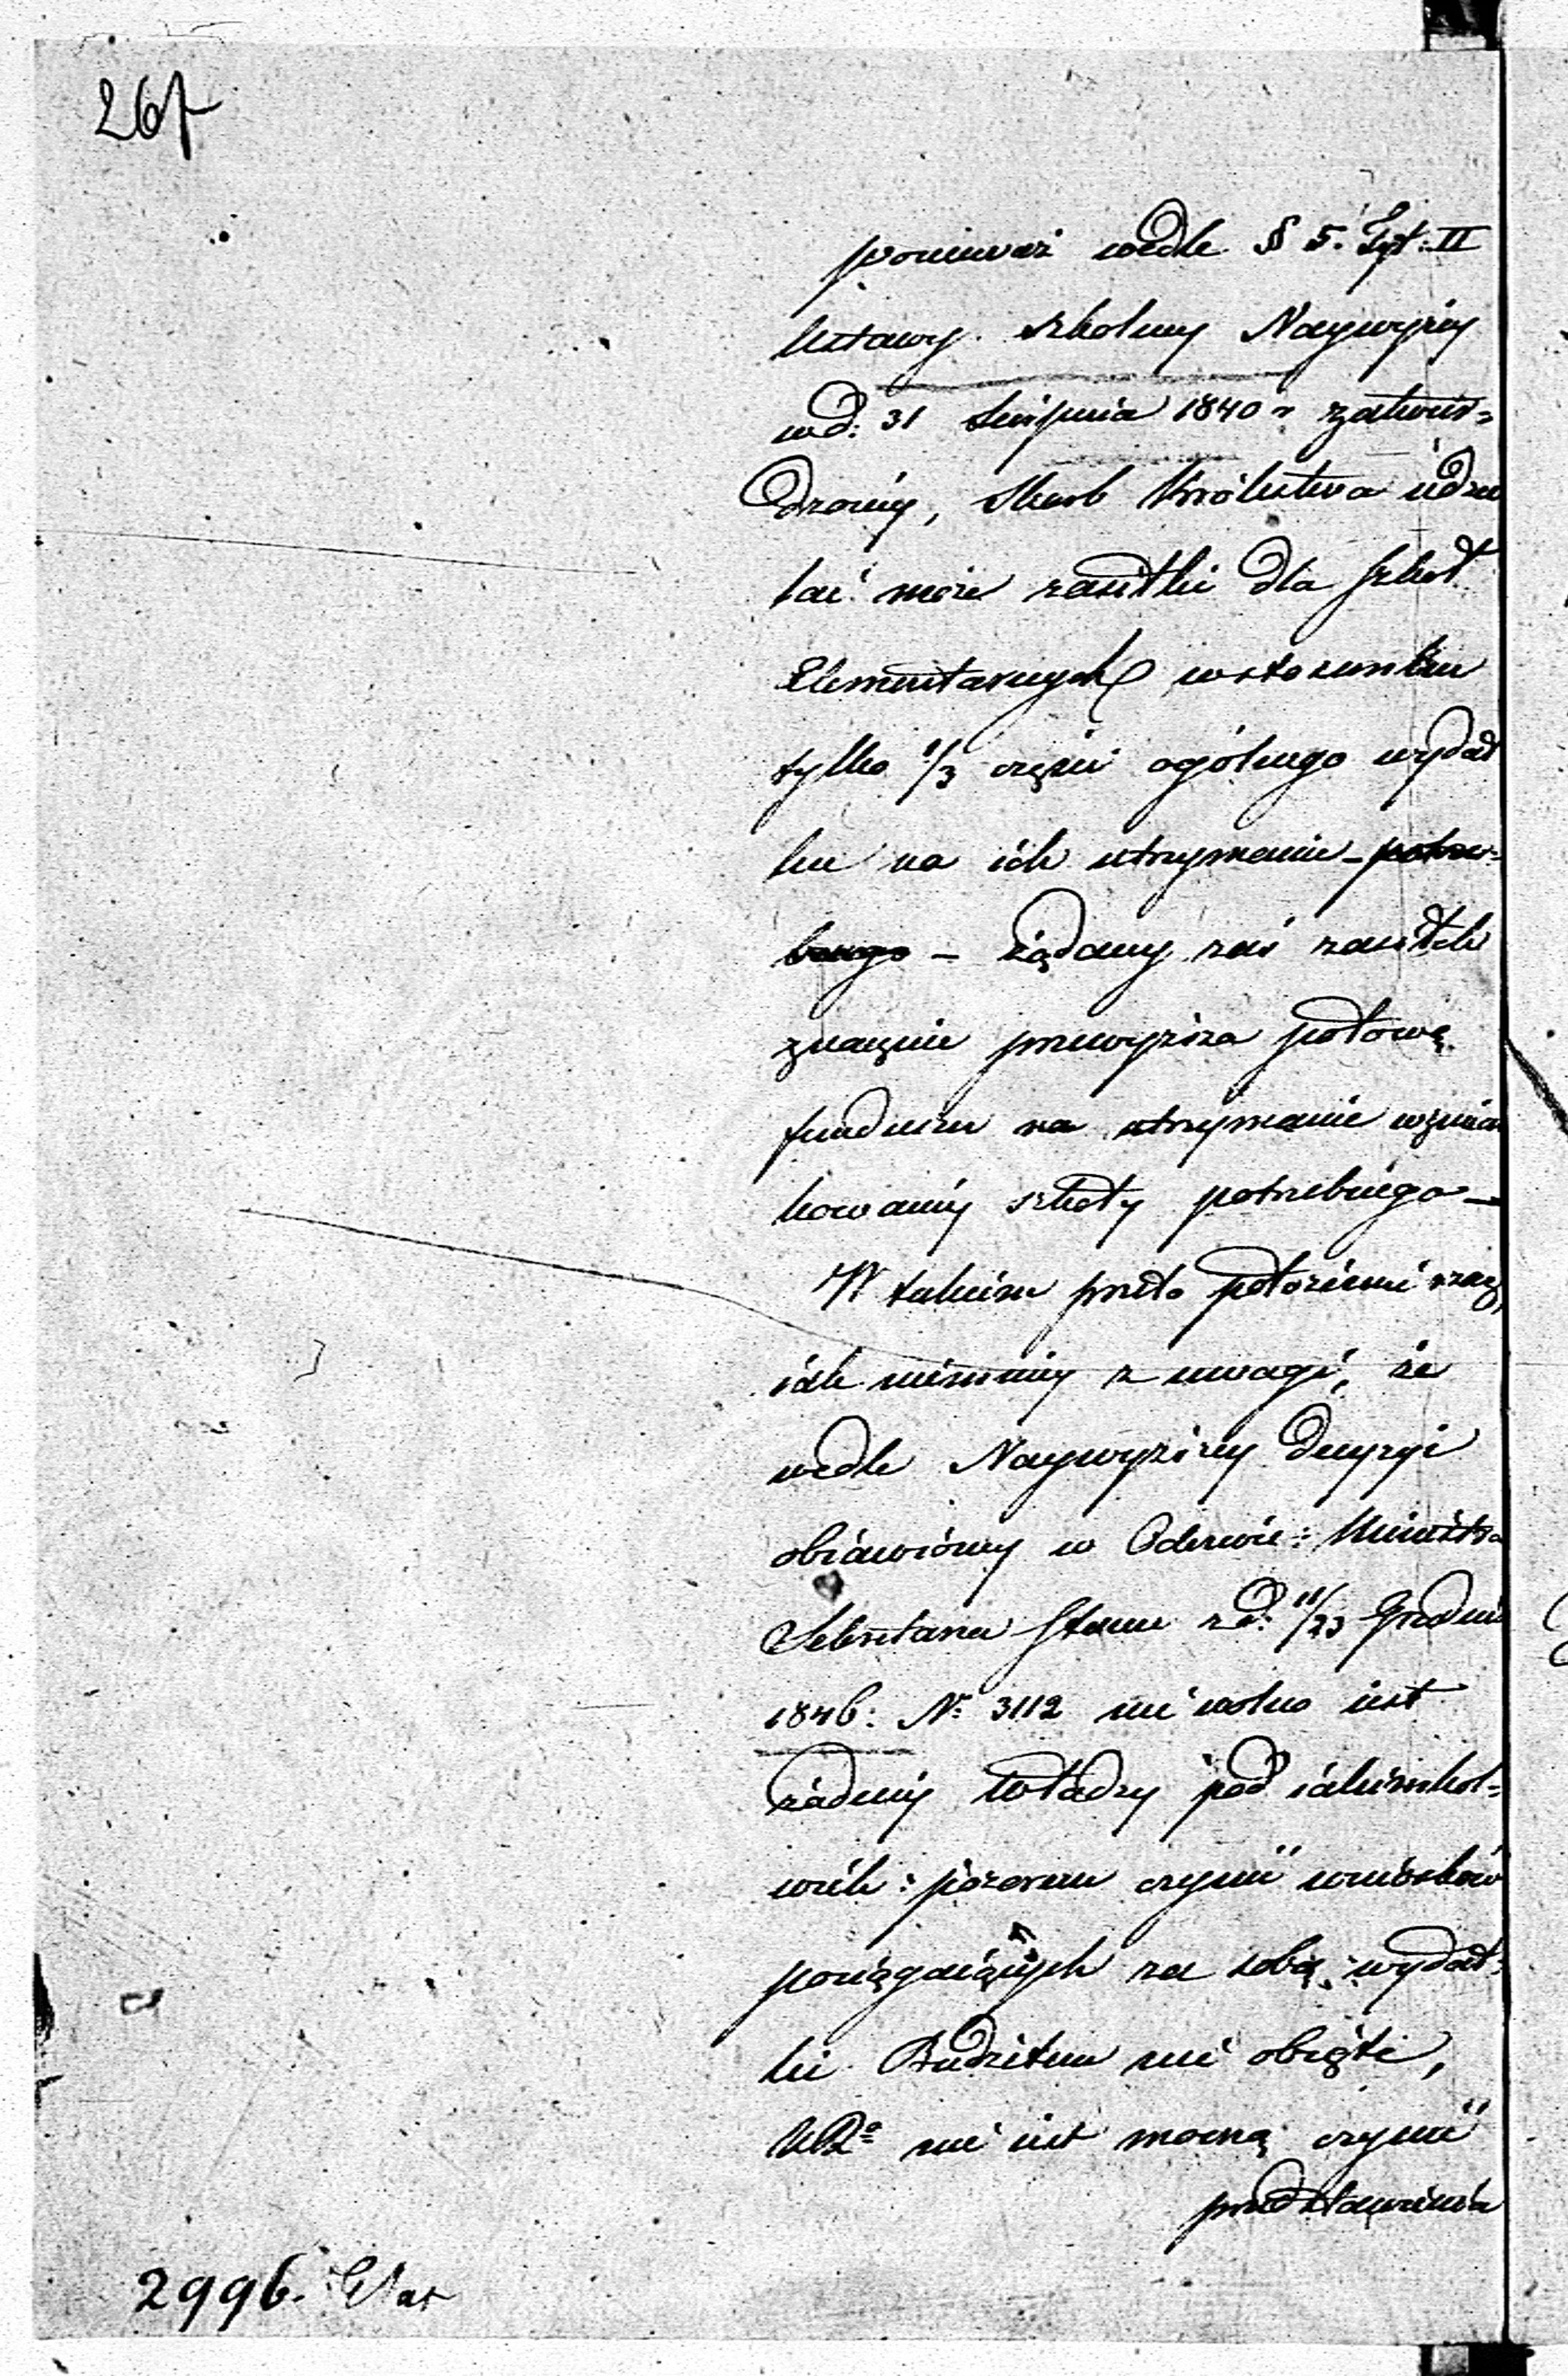 267
ponieważ wedle § 5. Tyt: II
Ustawy szkolney Naywyżey
w d: 31 Sierpnia 1840 r zatwier=
dzoney, Skarb Królestwa udzie
lać może zasiłki dla szkół
Elementarnych w stosunku
tylko 1/3 części ogólnego wydat
ku na ich utrzymanie – potrze=
bnego – żądany zaś zasiłek
znacznie przewyższa połowę
funduszu na utrzymanie wzmian
kowaney szkoły potrzebnego –
W takim przeto położeniu rzeczy
iak niemniey z uwagi, że
wedle Naywyższey decyzyi
obiawioney w Odezwie: Ministra
Sekretarza Stanu z d: 11/23 Grudnia
1846: N: 3112 nie wolno iest
żadney Władzy pod iakimkol=
wiek: pozorem czynić wniosków
pociągaiących za sobą wydat:
ki Budżetem nie obięte,
KR. nie iest mocną czynić
przedstawienia
2996.